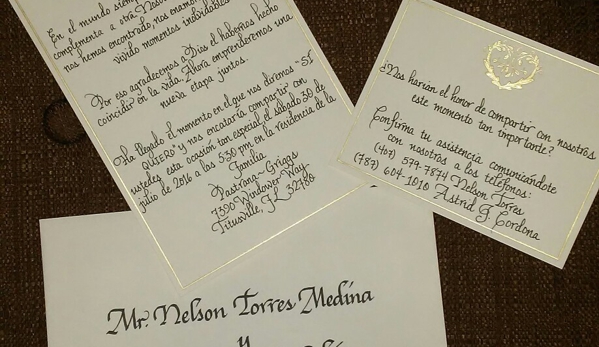 En el mundo siempre
complementa a otra. Nos
nos hemos encontrado, nos enamor
vivido momentos inolvidables
Por eso agradecemos a Dios el habernos hecho
coincidir en la vida. Ahora emprenderemos una
nueva etapa juntos.
Ha llegado el momento en el que nos diremos "SI
QUIERO" y nos encataría compartir con
ustedes esta ocasión tan especial el sábado 30 de
julio de 2016 a las 5:30 pm en la residencia de la
Familia
Pastrana-Griggs
7390 Windover Way
Titusville, FL 32780
¿Nos harían el honor de compartir con nosotros
este momento tan importante?
Confirma tu asistencia comunicándote
con nosotros a los teléfonos:
(407) 579-7874 Nelson Torres
(787) 604-1010 Astrid G. Cordona
Mr. Nelson Torres Medina
y